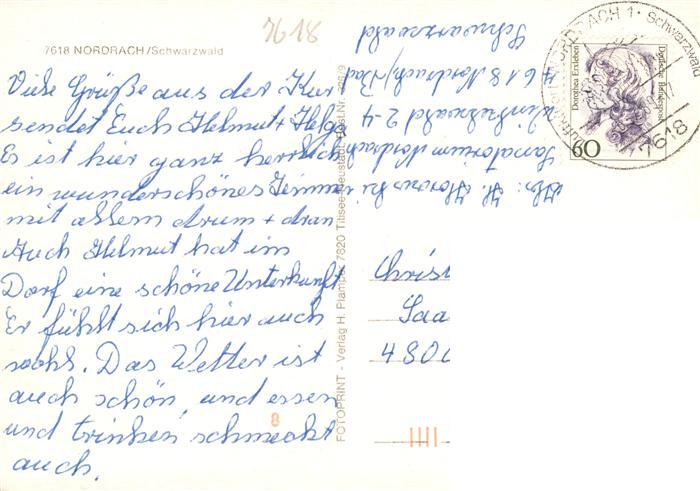 7618
7618 NORDRACH/Schwarzwald
Viele Grüße aus der Kur
sendet Euch Helmut + Helga
Es ist hier ganz herrlich
ein wunderschönes Zimmer
mit allem drum + dran
Auch Helmut hat im
Dorf eine schöne Unterkunft
Er fühlt sich hier auch
wohl. Das Wetter ist
auch schön, und essen
und trinken schmeckt
auch.
FOTOPRINT - Verlag H. Pfampe, 7820 Titisee-Neustadt, Best.Nr.
Abs.: H.
Sanatorium Nordrach
Winkelwald 2-4
7618 Nordrach/Bad
Schwarzwald
NORDRACH 1 · Schwarzwald
7618
Dorothea Erxleben
Deutsche Bundespost
60
Christ
Saa
480
8